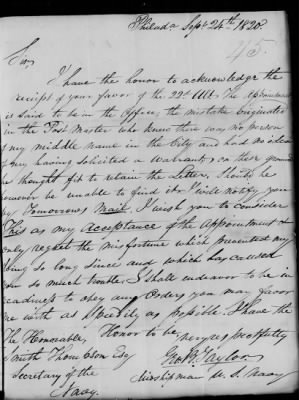 Philada Sept 24th 1820.
45.
Sir,
I have the honor to acknowledge the
receipt of your favor of the 22d Ult. The appointment
is said to be in the Office, the mistake originated
in the Post Master who knew there was no person
of my middle name in the City and had no idea
of my having solicited a Warrant, on these grounds
he thought fit to retain the Letter, Should he
however be unable to find it, I will notify you
by Tomorrows Mail. I wish you to consider
This as my Acceptance of the Appointment &
only regret the misfortune which prevented my
doing so long since and which has caused
you so much trouble. I shall endeavor to be in
readiness to obey any Orders you may favor
me with as speedily as possible. I have the
The Honorable, Honor to be,
Smith Thompson Esq very respectfully
Secretary of the Geo. Taylor
Navy. Midshipman U. S. Navy